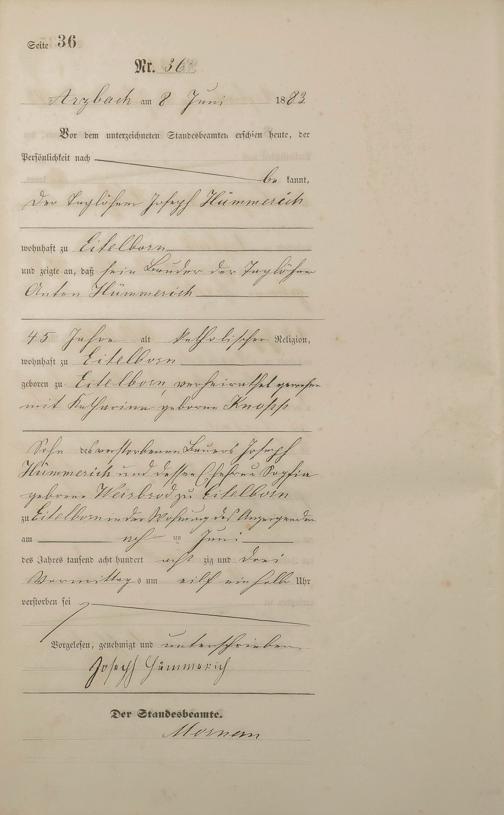 Seite 36
Nr. 36
Arzbach am 8 Juni 1883
Vor dem unterzeichneten Standesbeamten erschien heute, der
Persönlichkeit nach
be kannt,
der Taglöhner Joseph Hümmerich
wohnhaft zu Eitelborn
und zeigte an, daß sein Bruder der Taglöhner
Anton Hümmerich
45 Jahre alt katholischer Religion,
wohnhaft zu Eitelborn
geboren zu Eitelborn, verheirathet gewesen
mit Katharina geborene Knopp
Sohn des verstorbenen Bauers Joseph
Hümmerich und dessen Ehefrau Sophia
geborene Weisbrod zu Eitelborn
zu Eitelborn in der Wohnung des Anzeigenden
am Juni
des Jahres tausend acht hundert acht zig und drei
Vormittags um eilf ein halb Uhr
verstorben sei
Vorgelesen, genehmigt und unterschrieben
Joseph Hümmerich
Der Standesbeamte.